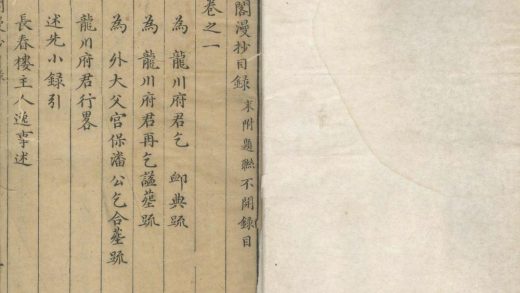 閣漫抄目録 末附題聮不開録目
卷之一
為龍川府君乞卹典疏
為龍川府君再乞諡塟疏
為外大父宫保潘公乞合塟疏
龍川府君行畧
述先小録引
長春樓主人逸事述